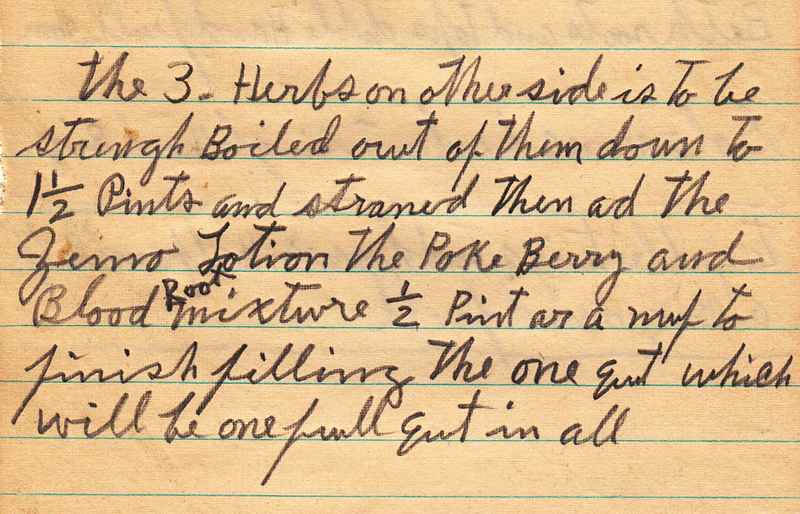 the 3 - Herbs on other side is to be
strengh Boiled out of them down to
1 1/2 Pints and straned then ad the
Zemo Lotion the Poke Berry and
Blood Root mixture 1/2 Pint or a nuf to
finish filling the one qut which
will be one full qut in all